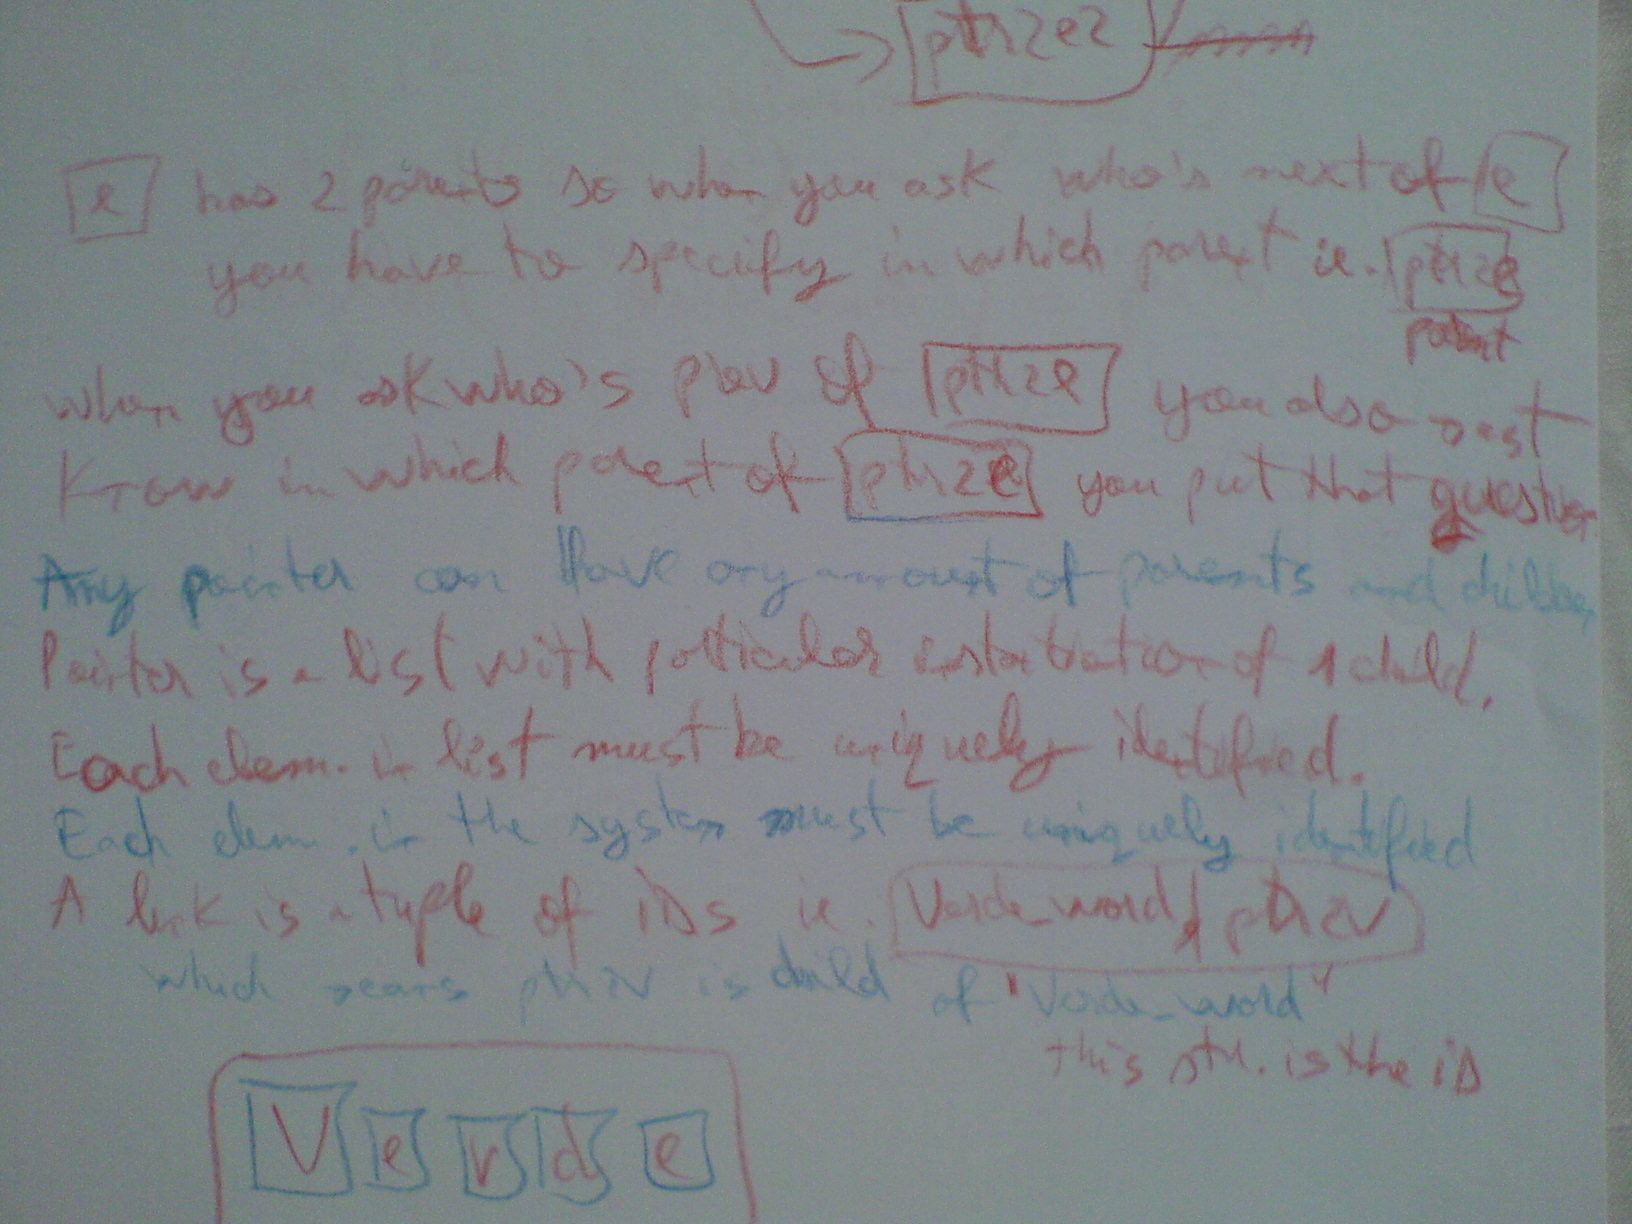 ptr2e2
e has 2 parents so when you ask who's next of e
you have to specify in which parent ie. ptr2e
parent
when you ask who's prev of ptr2e you also must
know in which parent of ptr2e you put that question
Any pointer can have any amount of parents and children
Pointer is a list with particular instantiation of 1 child.
Each elem. in list must be uniquely identified.
Each elem. in the system must be uniquely identified
A link is a tuple of iDs ie. Verde_word, ptr2V
which means ptr2V is child of "Verde_word"
this str. is the iD
V e r d e